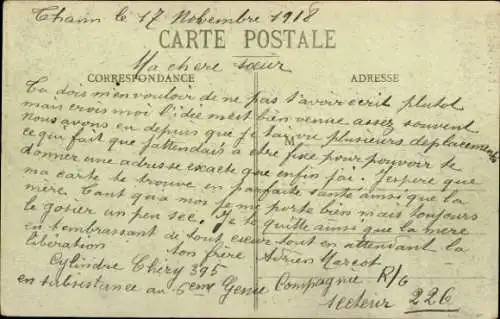 Thann le 17 Novembre 1918
CARTE POSTALE
Ma chere sœur
CORRESPONDANCE
ADRESSE
Tu dois m'en vouloir de ne pas t'avoir ecrit plutot
mais crois moi l'idée m'est bien venue assez souvent
M
Nous avons eu depuis que je t'ai vu plusieurs deplacements
ce qui fait que j'attendais a etre fixé pour pouvoir te
donner une adresse exacte que enfin j'ai. J'espere que
ma carte te trouve en parfaite santé ainsi que la
mère. Tant qu'a moi je me porte bien mais toujours
le gosier un peu sec. Je te quitte ainsi que la mere
en t'embrassant de tout cœur tout en attendant la
libération
Ton frère Adrien Marcot
Cylindre Chéry 395
en subsistance au 6eme Genie Compagnie R/6
Secteur 226